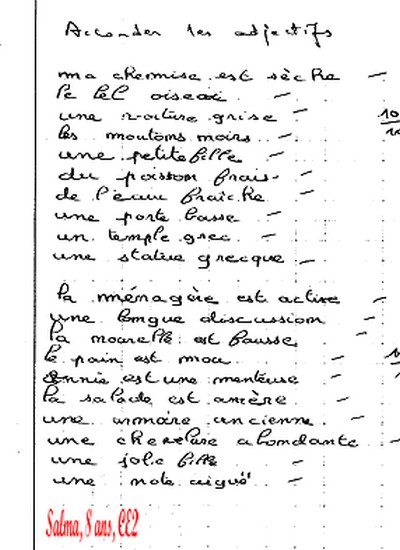 Accorder les adjectifs
ma chemise est sèche
le bel oiseau
une voiture grise
les moutons noirs
une petite fille
du poisson frais
de l'eau fraîche
une porte basse
un temple grec
une statue grecque
la ménagère est active
une longue discussion
la nouvelle est fausse
le pain est mou
Annie est une menteuse
la salade est amère
une armoire ancienne
une chevelure abondante
une jolie fille
une note aiguë
Salma, 8 ans, CE2